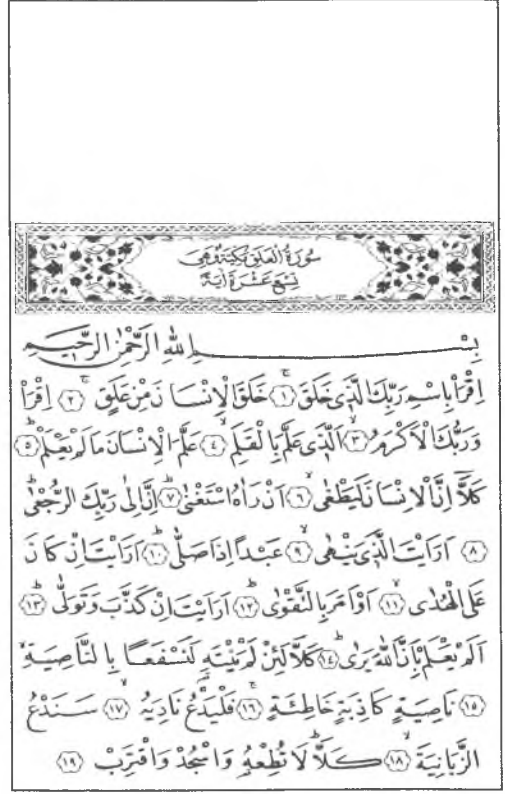 سُورَةُ الْعَلَقِ مَكِّيَّةٌ وَهِيَ
تِسْعَ عَشْرَةَ اٰيَةً
بِسْــــــمِ اللّٰهِ الرَّحْمٰنِ الرَّحٖيمِ
اِقْرَأْ بِاسْمِ رَبِّكَ الَّذٖى خَلَقَۚ ﴿١﴾ خَلَقَ الْاِنْسَانَ مِنْ عَلَقٍۚ ﴿٢﴾ اِقْرَأْ
وَرَبُّكَ الْاَكْرَمُۙ ﴿٣﴾ اَلَّذٖى عَلَّمَ بِالْقَلَمِۙ ﴿٤﴾ عَلَّمَ الْاِنْسَانَ مَا لَمْ يَعْلَمْؕ ﴿٥﴾
كَلَّٓا اِنَّ الْاِنْسَانَ لَيَطْغٰىۙ ﴿٦﴾ اَنْ رَاٰهُ اسْتَغْنٰىؕ ﴿٧﴾ اِنَّ اِلٰى رَبِّكَ الرُّجْعٰىؕ
﴿٨﴾ اَرَاَيْتَ الَّذٖى يَنْهٰىۙ ﴿٩﴾ عَبْدًا اِذَا صَلّٰىؕ ﴿١٠﴾ اَرَاَيْتَ اِنْ كَانَ
عَلَى الْهُدٰىۙ ﴿١١﴾ اَوْ اَمَرَ بِالتَّقْوٰىؕ ﴿١٢﴾ اَرَاَيْتَ اِنْ كَذَّبَ وَتَوَلّٰىؕ ﴿١٣﴾
اَلَمْ يَعْلَمْ بِاَنَّ اللّٰهَ يَرٰىؕ ﴿١٤﴾ كَلَّا لَئِنْ لَمْ يَنْتَهِ لَنَسْفَعًا بِالنَّاصِيَةِۙ
﴿١٥﴾ نَاصِيَةٍ كَاذِبَةٍ خَاطِئَةٍۚ ﴿١٦﴾ فَلْيَدْعُ نَادِيَهُۙ ﴿١٧﴾ سَنَدْعُ
الزَّبَانِيَةَۙ ﴿١٨﴾ كَلَّاؕ لَا تُطِعْهُ وَاسْجُدْ وَاقْتَرِبْ ﴿١٩﴾